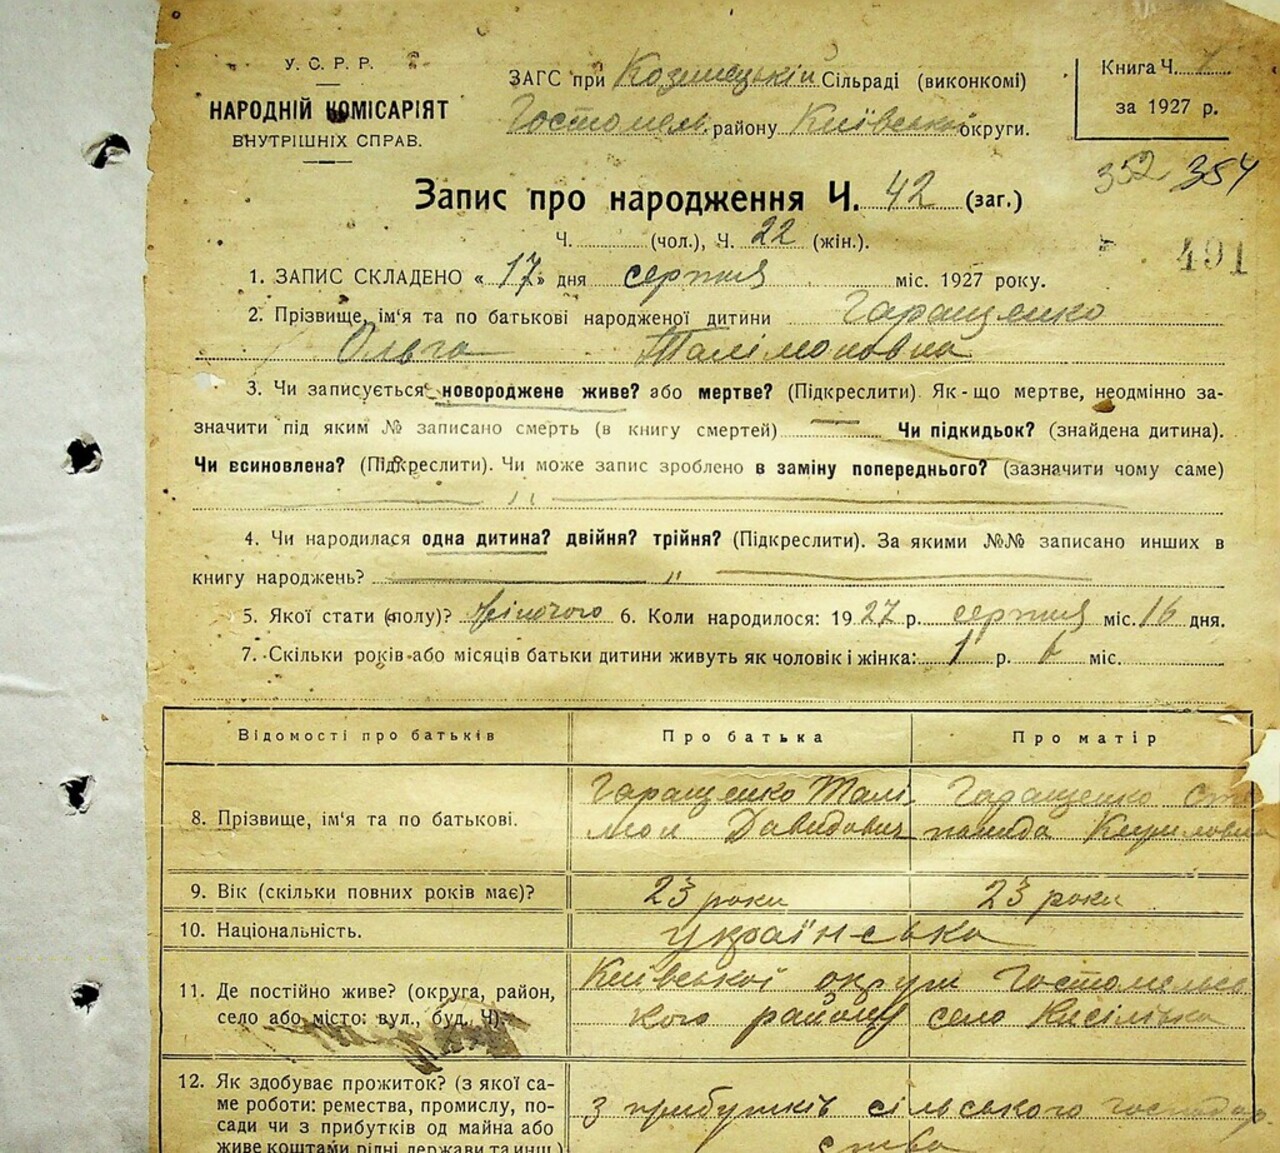 У. С. Р. Р.
НАРОДНІЙ КОМІСАРІЯТ
ВНУТРІШНІХ СПРАВ.
ЗАГС при Козинецькій Сільраді (виконкомі)
Гостомель району Київської округи.
Книга Ч.
за 1927 р.
352 354
491
Запис про народження Ч. 42 (заг.)
Ч. (чол.), Ч. 22 (жін.).
1. ЗАПИС СКЛАДЕНО « 17 » дня серпня міс. 1927 року.
2. Прізвище, ім'я та по батькові народженої дитини Гаращенко
Ольга Талімоновна
3. Чи записується новороджене живе? або мертве? (Підкреслити). Як-що мертве, неодмінно за-
значити під яким № записано смерть (в книгу смертей) Чи підкидьок? (знайдена дитина).
Чи всиновлена? (Підкреслити). Чи може запис зроблено в заміну попереднього? (зазначити чому саме)
4. Чи народилася одна дитина? двійня? трійня? (Підкреслити). За якими №№ записано инших в
книгу народжень? "
5. Якої стати (полу)? жіночого 6. Коли народилося: 1927 р. серпня міс. 16 дня.
7. Скільки років або місяців батьки дитини живуть як чоловік і жінка: 1 р. 6 міс.
Відомості про батьків Про батька Про матір
8. Прізвище, ім'я та по батькові. Гаращенко Талі- Гаращенко
мон Давидович Кириловна
9. Вік (скільки повних років має)? 23 роки 23 роки
10. Національність. українська
11. Де постійно живе? (округа, район, Київської округи Гостомельс
село або місто: вул., буд. Ч). кого району село
12. Як здобуває прожиток? (з якої са-
ме роботи: ремества, промислу, по- з прибутків сільського господар
сади чи з прибутків од майна або ства
живе коштами рідні, держави та инш.)